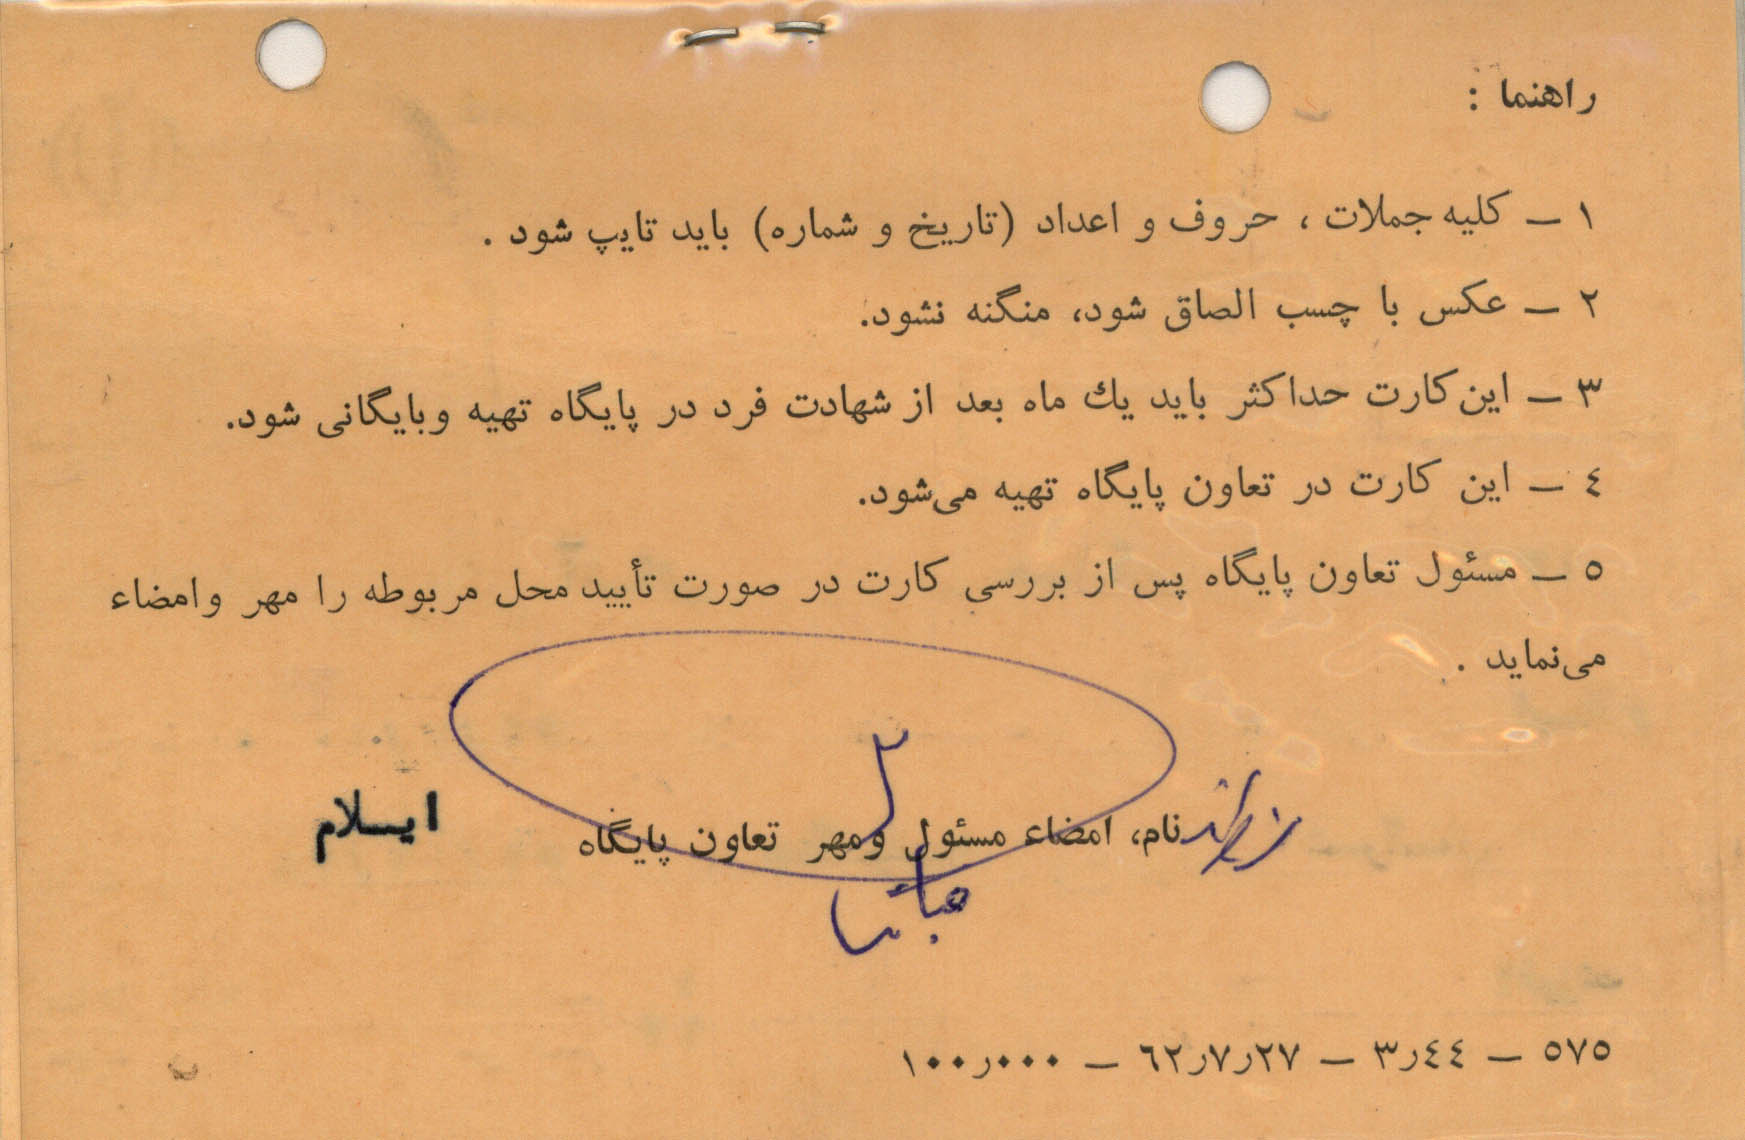 راهنما :
۱ – کلیه جملات ، حروف و اعداد (تاریخ و شماره) باید تایپ شود .
۲ – عکس با چسب الصاق شود، منگنه نشود.
۳ – این کارت حداکثر باید یك ماه بعد از شهادت فرد در پایگاه تهیه وبایگانی شود.
٤ – این کارت در تعاون پایگاه تهیه می‌شود.
٥ – مسئول تعاون پایگاه پس از بررسی کارت در صورت تأیید محل مربوطه را مهر وامضاء
می‌نماید .
نام، امضاء مسئول ومهر تعاون پایگاه
ایـلام
٥٧٥ – ٤٤ر٣ – ٢٧ر٧ر٦٢ – ٠٠٠ر١٠٠